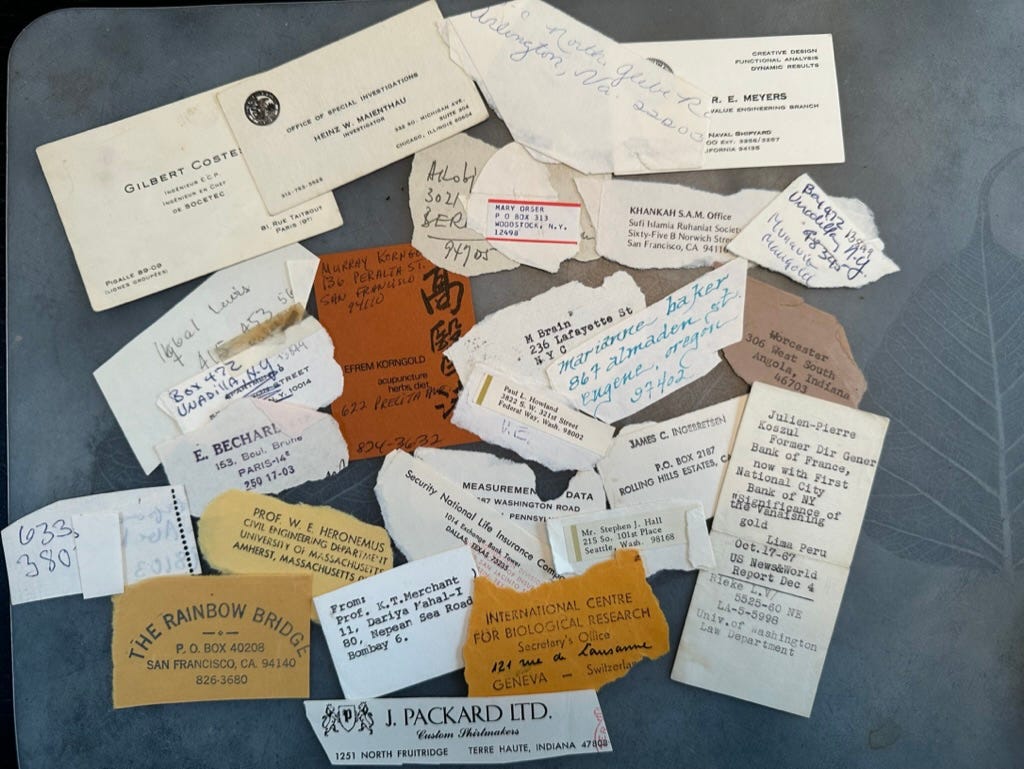 GILBERT COSTE
INGÉNIEUR E.C.P.
INGÉNIEUR EN CHEF
DE SOCETEC
81, RUE TAITBOUT
PARIS (9e)
PIGALLE 89-09
(LIGNES GROUPÉES)
OFFICE OF SPECIAL INVESTIGATIONS
HEINZ W. MAIENTHAU
INVESTIGATOR
SUITE 304
CHICAGO, ILLINOIS 60604
North Glebe R
Arlington, Va. 22203
CREATIVE DESIGN
FUNCTIONAL ANALYSIS
DYNAMIC RESULTS
R. E. MEYERS
VALUE ENGINEERING BRANCH
NAVAL SHIPYARD
00 EXT. 3256/3257
IFORNIA 94135
3021
BER
94705
MARY ORSER
P O BOX 313
WOODSTOCK, N.Y.
12498
KHANKAH S.A.M. Office
Sufi Islamia Ruhaniat Society
Sixty-Five B Norwich Stre
San Francisco, CA 94110
Box 472
Unadilla, N.Y.
Iqbal Lewis
415 453 56
BOX 472
UNADILLA N.Y.
STREET
N.Y. 10014
MURRAY KORNGO
136 PERALTA ST.
SAN FRANCISCO
94110
高
醫
EFREM KORNGOLD
acupuncture
herbs, diet
824-3632
M Brain
236 Lafayette St
N Y C
marianne baker
867 almaden st.
eugene, oregon
97402
Worcester
306 West South
Angola, Indiana
46703
Paul L. Howland
3822 S. W. 321st Street
Federal Way, Wash. 98002
V.E.
E. BECHARL
153, Boul. Brune
PARIS-14e
250 17-03
JAMES C. INGEBRETSEN
P.O. BOX 2187
ROLLING HILLES ESTATES, CA
MEASUREMEN DATA
WASHINGTON ROAD
PENNSYL
Security National Life Insurance Comp
1014 Exchange Bank Tower
DALLAS, TEXAS 75235
Mr. Stephen J. Hall
215 So. 101st Place
Seattle, Wash. 98168
Julien-Pierre
Koszul
Former Dir Gener
Bank of France,
now with First
National City
Bank of NY
"Significance of
the Vanaishing
gold
Lima Peru
Oct.17-67
US News&World
Report Dec 4
Rieke L.V/
5525-60 NE
LA-5-5998
Univ.of Washington
Law Department
633
380
PROF. W. E. HERONEMUS
CIVIL ENGINEERING DEPARTMENT
UNIVERSITY OF MASSACHUSETTS
AMHERST, MASSACHUSETTS
THE RAINBOW BRIDGE
P. O. BOX 40208
SAN FRANCISCO, CA. 94140
826-3680
From:
Prof. K.T.Merchant
11, Dariya Mahal-I
80, Nepean Sea Road
Bombay
6.
INTERNATIONAL CENTRE
FOR BIOLOGICAL RESEARCH
Secretary's Office
121 rue de Lausanne
GENEVA — Switzerlan
P
J. PACKARD LTD.
Custom Shirtmakers
1251 NORTH FRUITRIDGE TERRE HAUTE, INDIANA 47808